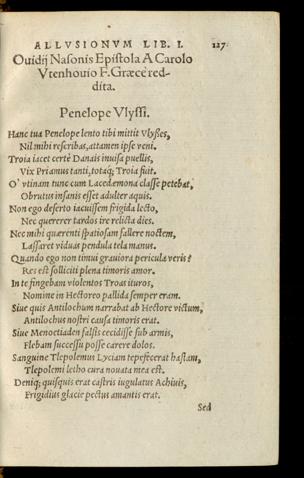 ALLVSIONVM LIB. I. 127.
Ouidij Nasonis Epistola A Carolo
Vtenhouio F. Græcè red-
dita.
Penelope Vlyssi.
Hanc tua Penelope lento tibi mittit Vlysses,
Nil mihi rescribas, attamen ipse veni.
Troia iacet certè Danais inuisa puellis,
Vix Priamus tanti, totaq; Troia fuit.
O' vtinam tunc cum Lacedæmona classe petebat,
Obrutus insanis esset adulter aquis.
Non ego deserto iacuissem frigida lecto,
Nec quererer tardos ire relicta dies.
Nec mihi quærenti spatiosam fallere noctem,
Lassaret viduas pendula tela manus.
Quando ego non timui grauiora pericula veris?
Res est solliciti plena timoris amor.
In te fingebam violentos Troas ituros,
Nomine in Hectoreo pallida semper eram.
Siue quis Antilochum narrabat ab Hectore victum,
Antilochus nostri causa timoris erat.
Siue Menoetiaden falsis cecidisse sub armis,
Flebam successu posse carere dolos.
Sanguine Tlepolemus Lyciam tepefecerat hastam,
Tlepolemi letho cura nouata mea est.
Deniq; quisquis erat castris iugulatus Achiuis,
Frigidius glacie pectus amantis erat.
Sed